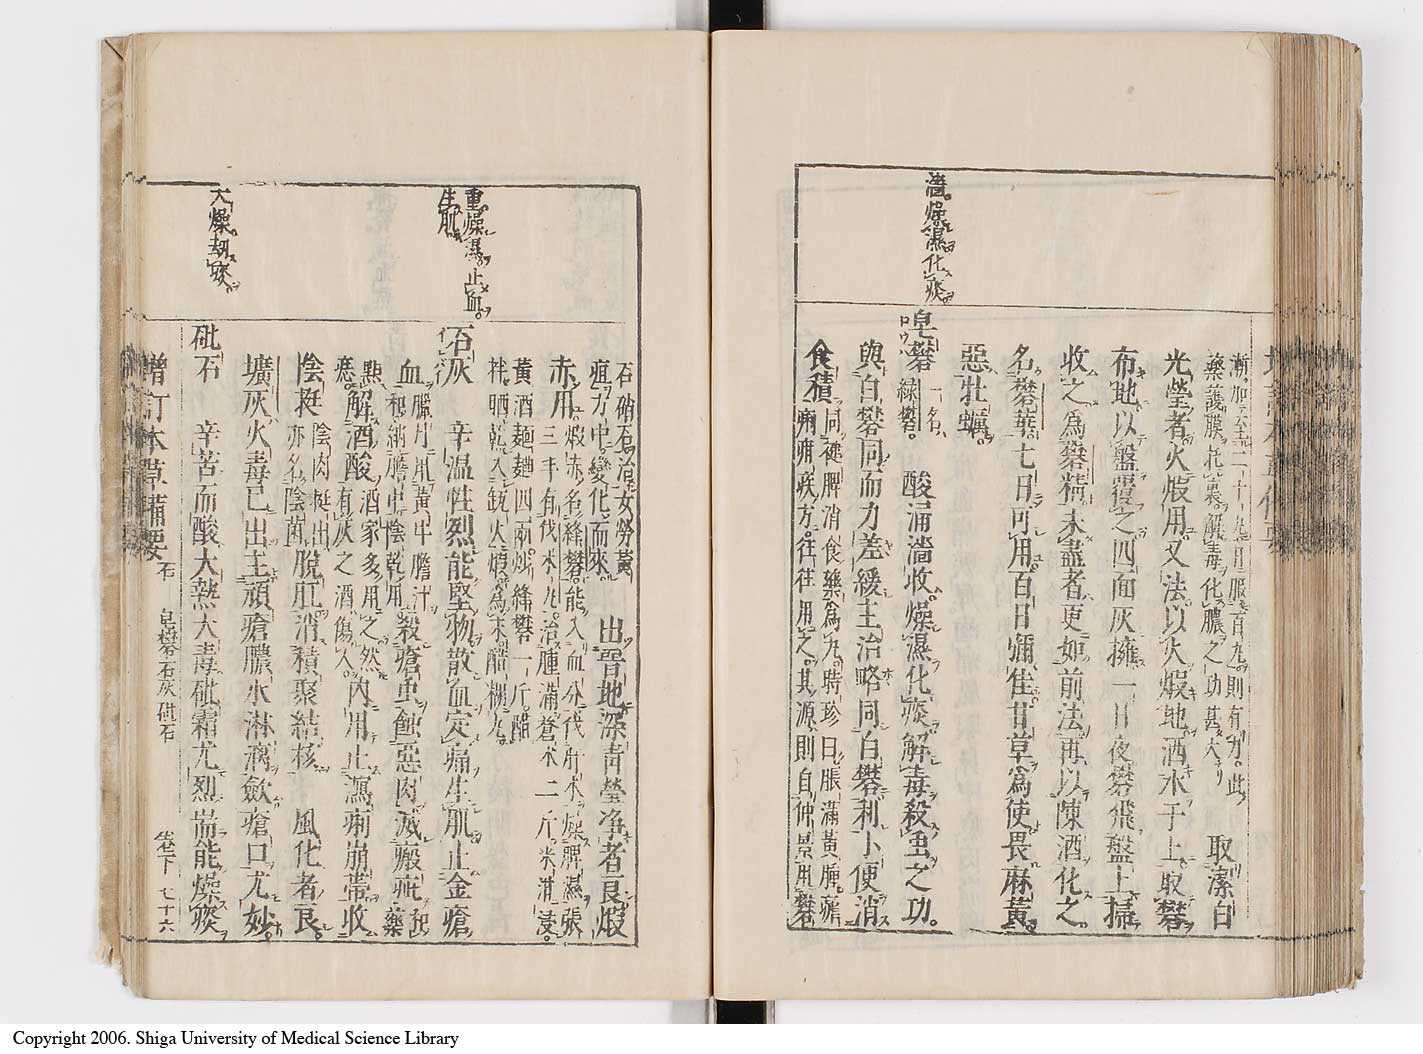 濇。燥濕化痰
漸加至二十九日服百丸則有力。此
藥護膜托裏。解毒化膿之功甚大
取潔白
光瑩者火煅用又法以火煅地洒水于上取礬
布地以盤覆之四面灰擁一日夜礬飛盤上掃
收之為礬精未盡者更如前法再以陳酒化之
名礬華七日可用百日彌佳甘草為使畏麻黃
惡牡蠣。
皂礬 一名綠礬。 酸涌濇收。燥濕化痰解毒殺蟲之功。
與白礬同而力差緩主治略同白礬利小便消
食積 同健脾消食藥為丸。時珍曰脹滿黃腫。瘧
痢疳疾方。往往用之。其源則自仲景用礬
重。燥濕。止血。
生肌
大燥劫痰
石硝石。治女勞黃
疸方中。變化而來。 出晉地深青瑩净者良煅
赤用 煅赤名絳礬。能入血分伐肝木。燥脾濕。張
三丰有伐木丸。治腫滿蒼朮二斤。米泔浸。
黃酒麵麯四兩。炒絳礬一斤。醋
拌晒乾入瓶火煅。為末醋糊丸。
石灰 辛温性烈能堅物散血定痛生肌止金瘡
血 臘月用黃牛膽汁
和納膽中陰乾用 殺瘡蟲蝕惡肉滅瘢疵 和藥
點痣 解酒酸 酒家多用之然
有灰之酒傷人。 內用止瀉痢崩帶收
陰挺 陰肉挺出
亦名陰菌 脫肛消積聚結核 風化者良。
壙灰火毒已出主頑瘡膿水淋漓斂瘡口尤妙
砒石 辛苦而酸大熱大毒砒霜尤烈耑能燥痰
增訂本草備要 石 皂礬石灰砒石 卷下 七十六
Copyright 2006. Shiga University of Medical Science Library